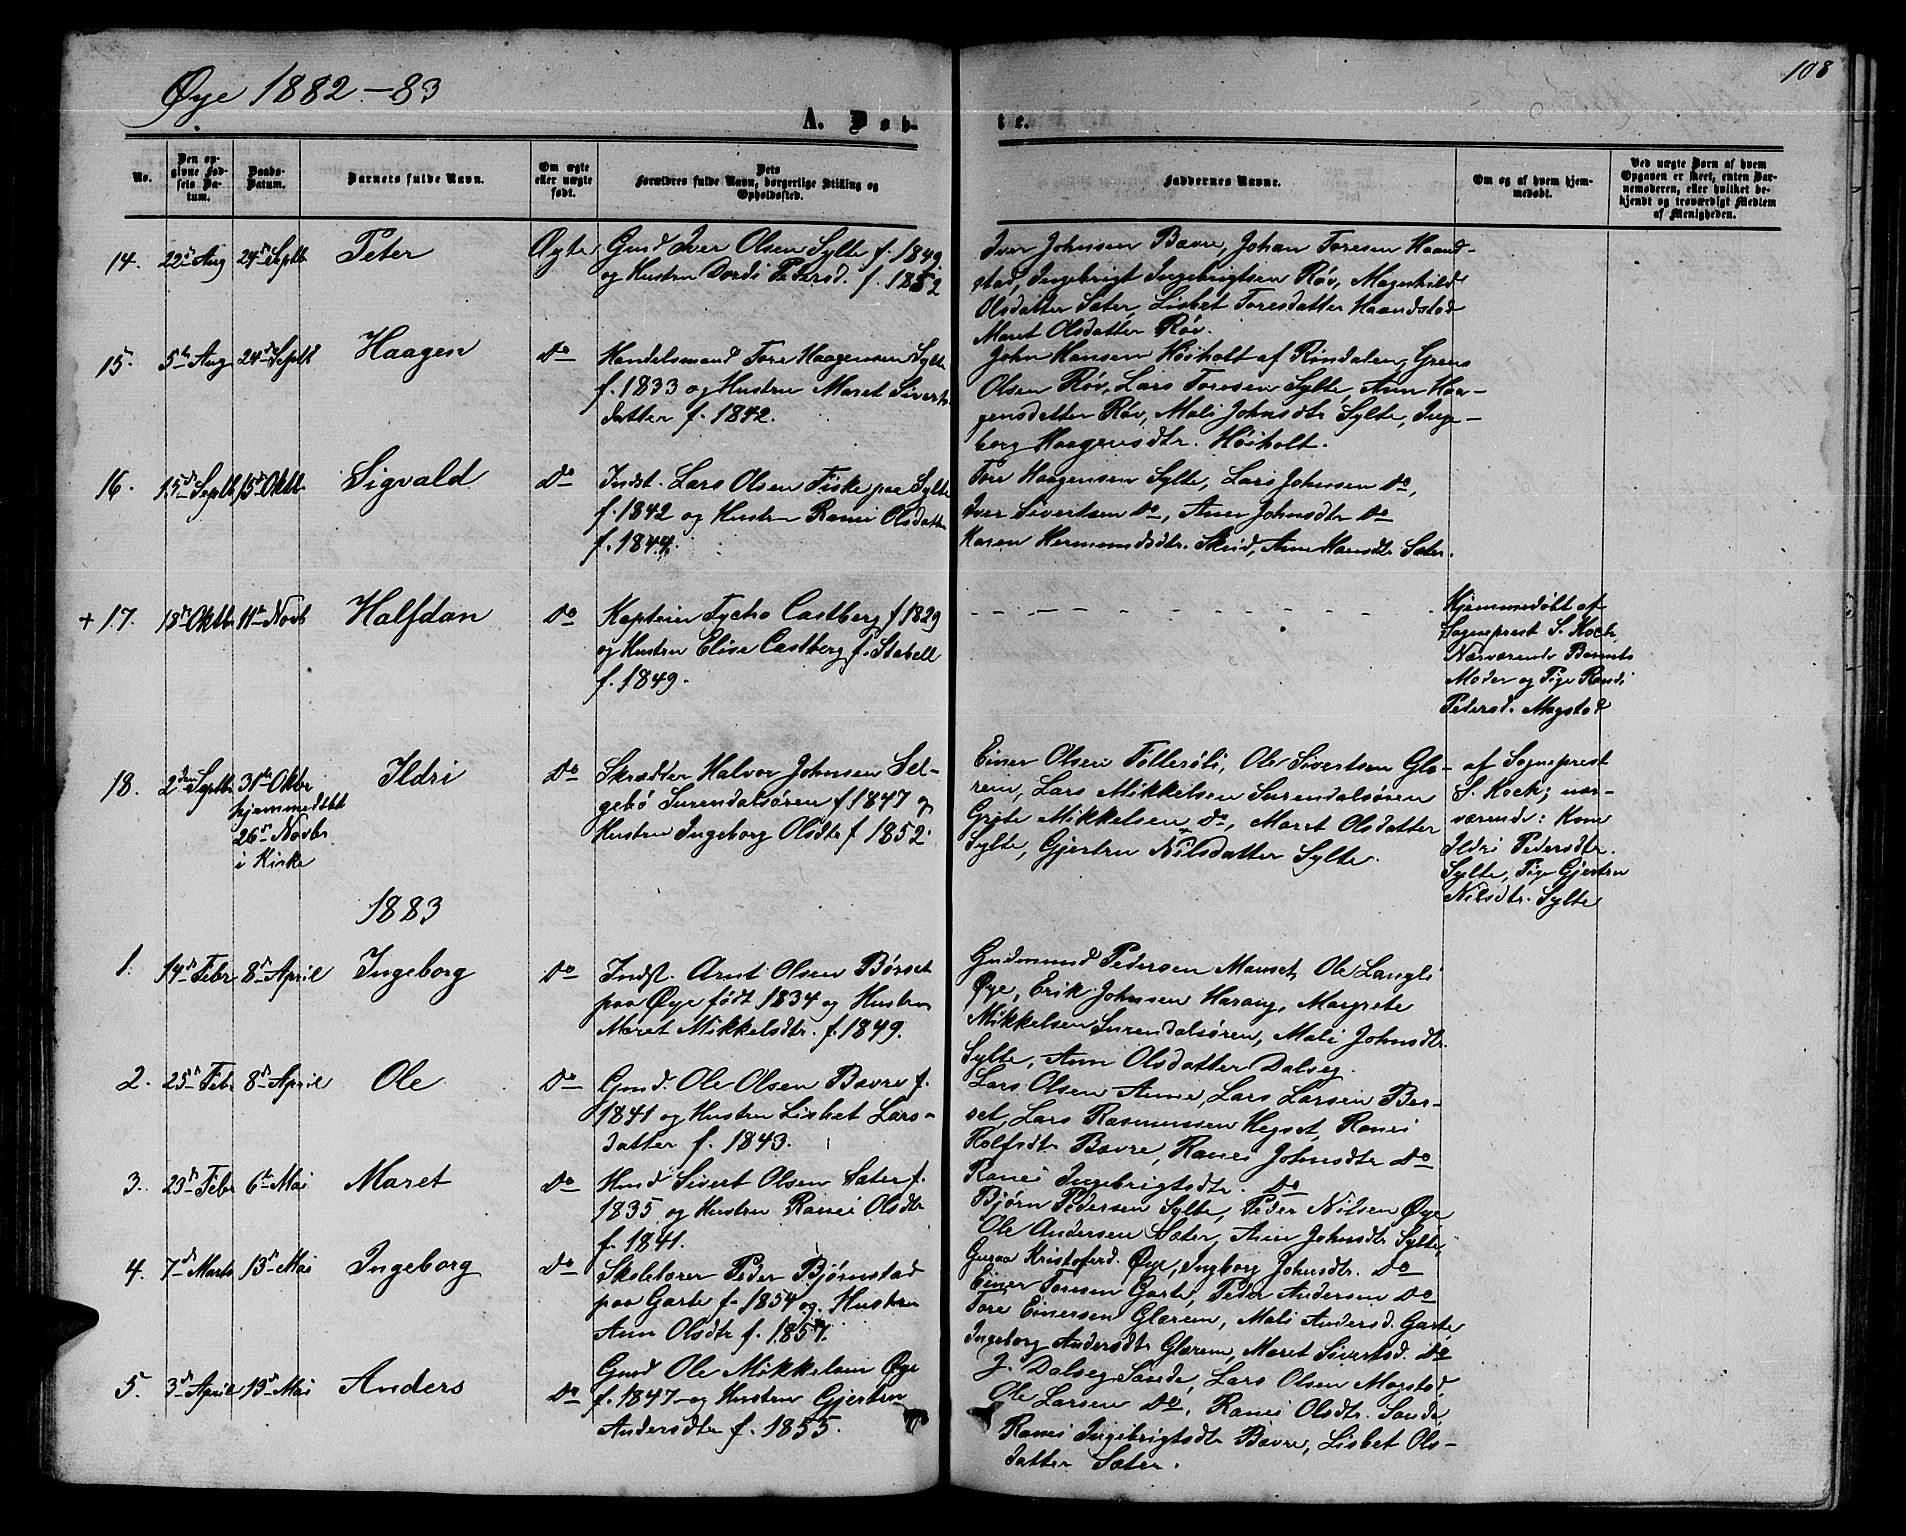 Øye 1882-83
108
A. Døb-
te.
No.
Den op-
givne Fød-
sels Da-
tum.
Daabs-
Datum.
Barnets fulde Navn.
Om ægte
eller uægte
født.
Dets
Forældres fulde Navn, borgerlige Stilling og
Opholdssted.
Faddernes Navne.
Om og af hvem hjem-
medøbt.
Ved uægte Børn af hvem
Opgaven er skeet, enten Bar-
nemoderen, eller hvilket be-
kjendt og troværdigt Medlem
af Menigheden.
14. 22de Aug 24de Septb Peter Ægte
Gmd Iver Olsen Sylte f. 1849
og Hustru Dordi Pedersd. f. 1852
Iver Johnsen Bævre, Johan Toresen Haand-
stad, Ingebrigt Ingebrigtsen Røv, Magnhild
Olsdatter Sæter, Lisbet Toresdatter Haandstad
Maret Olsdatter Røv.
15. 5te Aug 24de Septb Haagen Do
Handelsmand Tore Haagensen Sylte
f. 1833 og Hustru Maret Siverts-
datter f. 1842.
John Hansen Høiholt af Rindalen,
Olsen Røv, Lars Toresen Sylte, Ann Haa-
gensdatter Røv, Mali Johnsdtr Sylte, Inge-
borg Haagensdtr. Høiholt.
16. 15de Septb 15de Oktb. Sigvald Do
Indst. Lars Olsen Fiske paa Sylte
f. 1842 og Hustru Ranei Olsdatter
f. 1844.
Tore Haagensen Sylte, Lars Johnsen Do,
Iver Sivertsen Do, Ann Johnsdtr Do
Karen Hermundsdtr. Skei, Ann Hansdtr Sæter.
+ 17. 18de Oktbr 11te Novb Halfdan Do
Kaptein Tycho Castberg f 1829
og Hustru Elise Castberg f. Stabell
f. 1849.
Hjemmedøbt af
Sogneprest S. Koch
Nærværende Barnets
Moder og Pige Randi
Pedersd. Mogstad
18. 2den Septbr 31te Oktbr
hjemmedøbt
26de Novbr
i Kirke
Ildri Do
Skrædder Halvor Johnsen Sel-
gebø Surendalsøren f 1847 og
Hustru Ingeborg Olsdtr f 1852.
Einer Olsen Tellesbø, Ole Sivertsen Glæ-
rem, Lars Mikkelsen Surendalsøren
Grete Mikkelsen Do, Maret Olsdatter
Sylte, Gjertru Nilsdatter Sylte.
af Sogneprest
S. Koch; nær-
værende: Kone
Ildri Pedersdtr.
Sylte, Pige Gjertru
Nilsdtr. Sylte
1883
1. 14de Febr 8de April Ingeborg Do
Indst. Arnt Olsen Børset
paa Øye født 1834 og Hustru
Maret Mikkelsdtr. f. 1849.
Gudmund Pedersen Mauset, Ole Langli
Øye, Erik Johnsen Harang, Margrete
Mikkelsen Surendalsøren, Mali Johnsdtr.
Sylte, Ann Olsdatter Dalseg.
2. 25de Febr 8de April Ole Do
Gmd. Ole Olsen Bævre f.
1841 og Hustru Lisbet Lars-
datter f. 1843.
Lars Olsen Aune, Lars Larsen Ber-
set, Lars Rasmussen Hegset, Ranei
Rolfsdtr Bævre, Ranei Johnsdtr Do
Ranei Ingebrigtsdtr. Do
3. 23de Febr 6te Mai Maret Do
Hmd Sivert Olsen Sæter f.
1835 og Hustru Ranei Olsdtr
f. 1841.
Bjørn Pedersen Sylte, Peder Nilsen Øye
Ole Andersen Sæter, Ann Johnsdtr Sylte,
Guraa Kristoferd. Øye, Ingborg Johnsdtr. Do
4. 7de Marts 13de Mai Ingeborg Do
Skolelærer Peder Bjørnstad
paa Garte f. 1854 og Hustru
Ann Olsdtr f. 1857.
Einer Toresen Garte, Peder Andersen Do
Tore Einersen Glærem, Mali Andersd. Garte,
Ingeborg Andersdtr Glærem, Maret Sivertsd. Do
5. 3de April 13de Mai Anders Do
Gmd Ole Mikkelsen Øye
f. 1847 og Hustru Gjertru
Andersdtr f. 1855.
J. Dalseg Sande, Lars Olsen Mogstad,
Ole Larsen Do, Ranei Olsdtr. Sande,
Ranei Ingebrigtsdtr Bævre, Lisbet Ols-
datter Sæter.